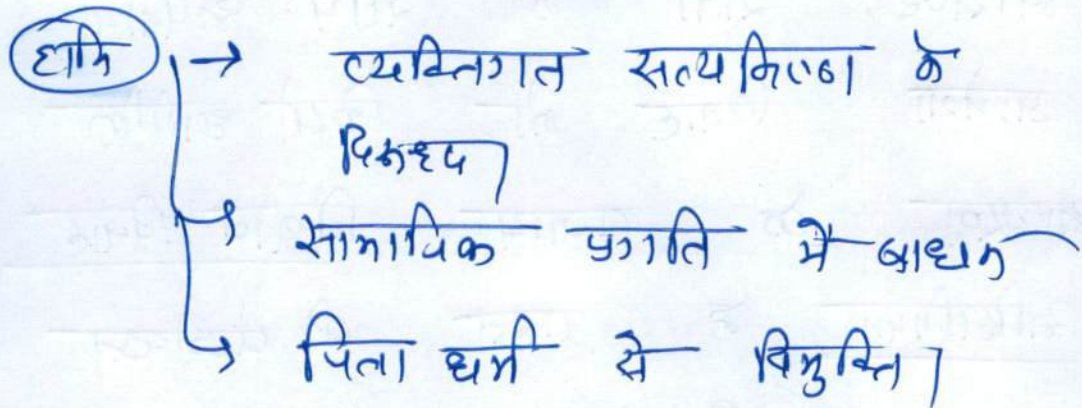 हानि → व्यक्तिगत सत्यनिष्ठा के
विरूध्द।
→ सामाजिक प्रगति में बाधक
→ पिता धर्म से विमुक्ति।